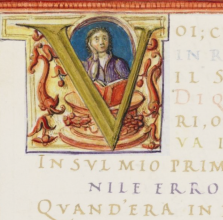 VOI; C
IN R
IL S
DI Q
RI, O
VA I
IN SVL MIO PRIM
NILE ERRO
QVAND'ERA IN